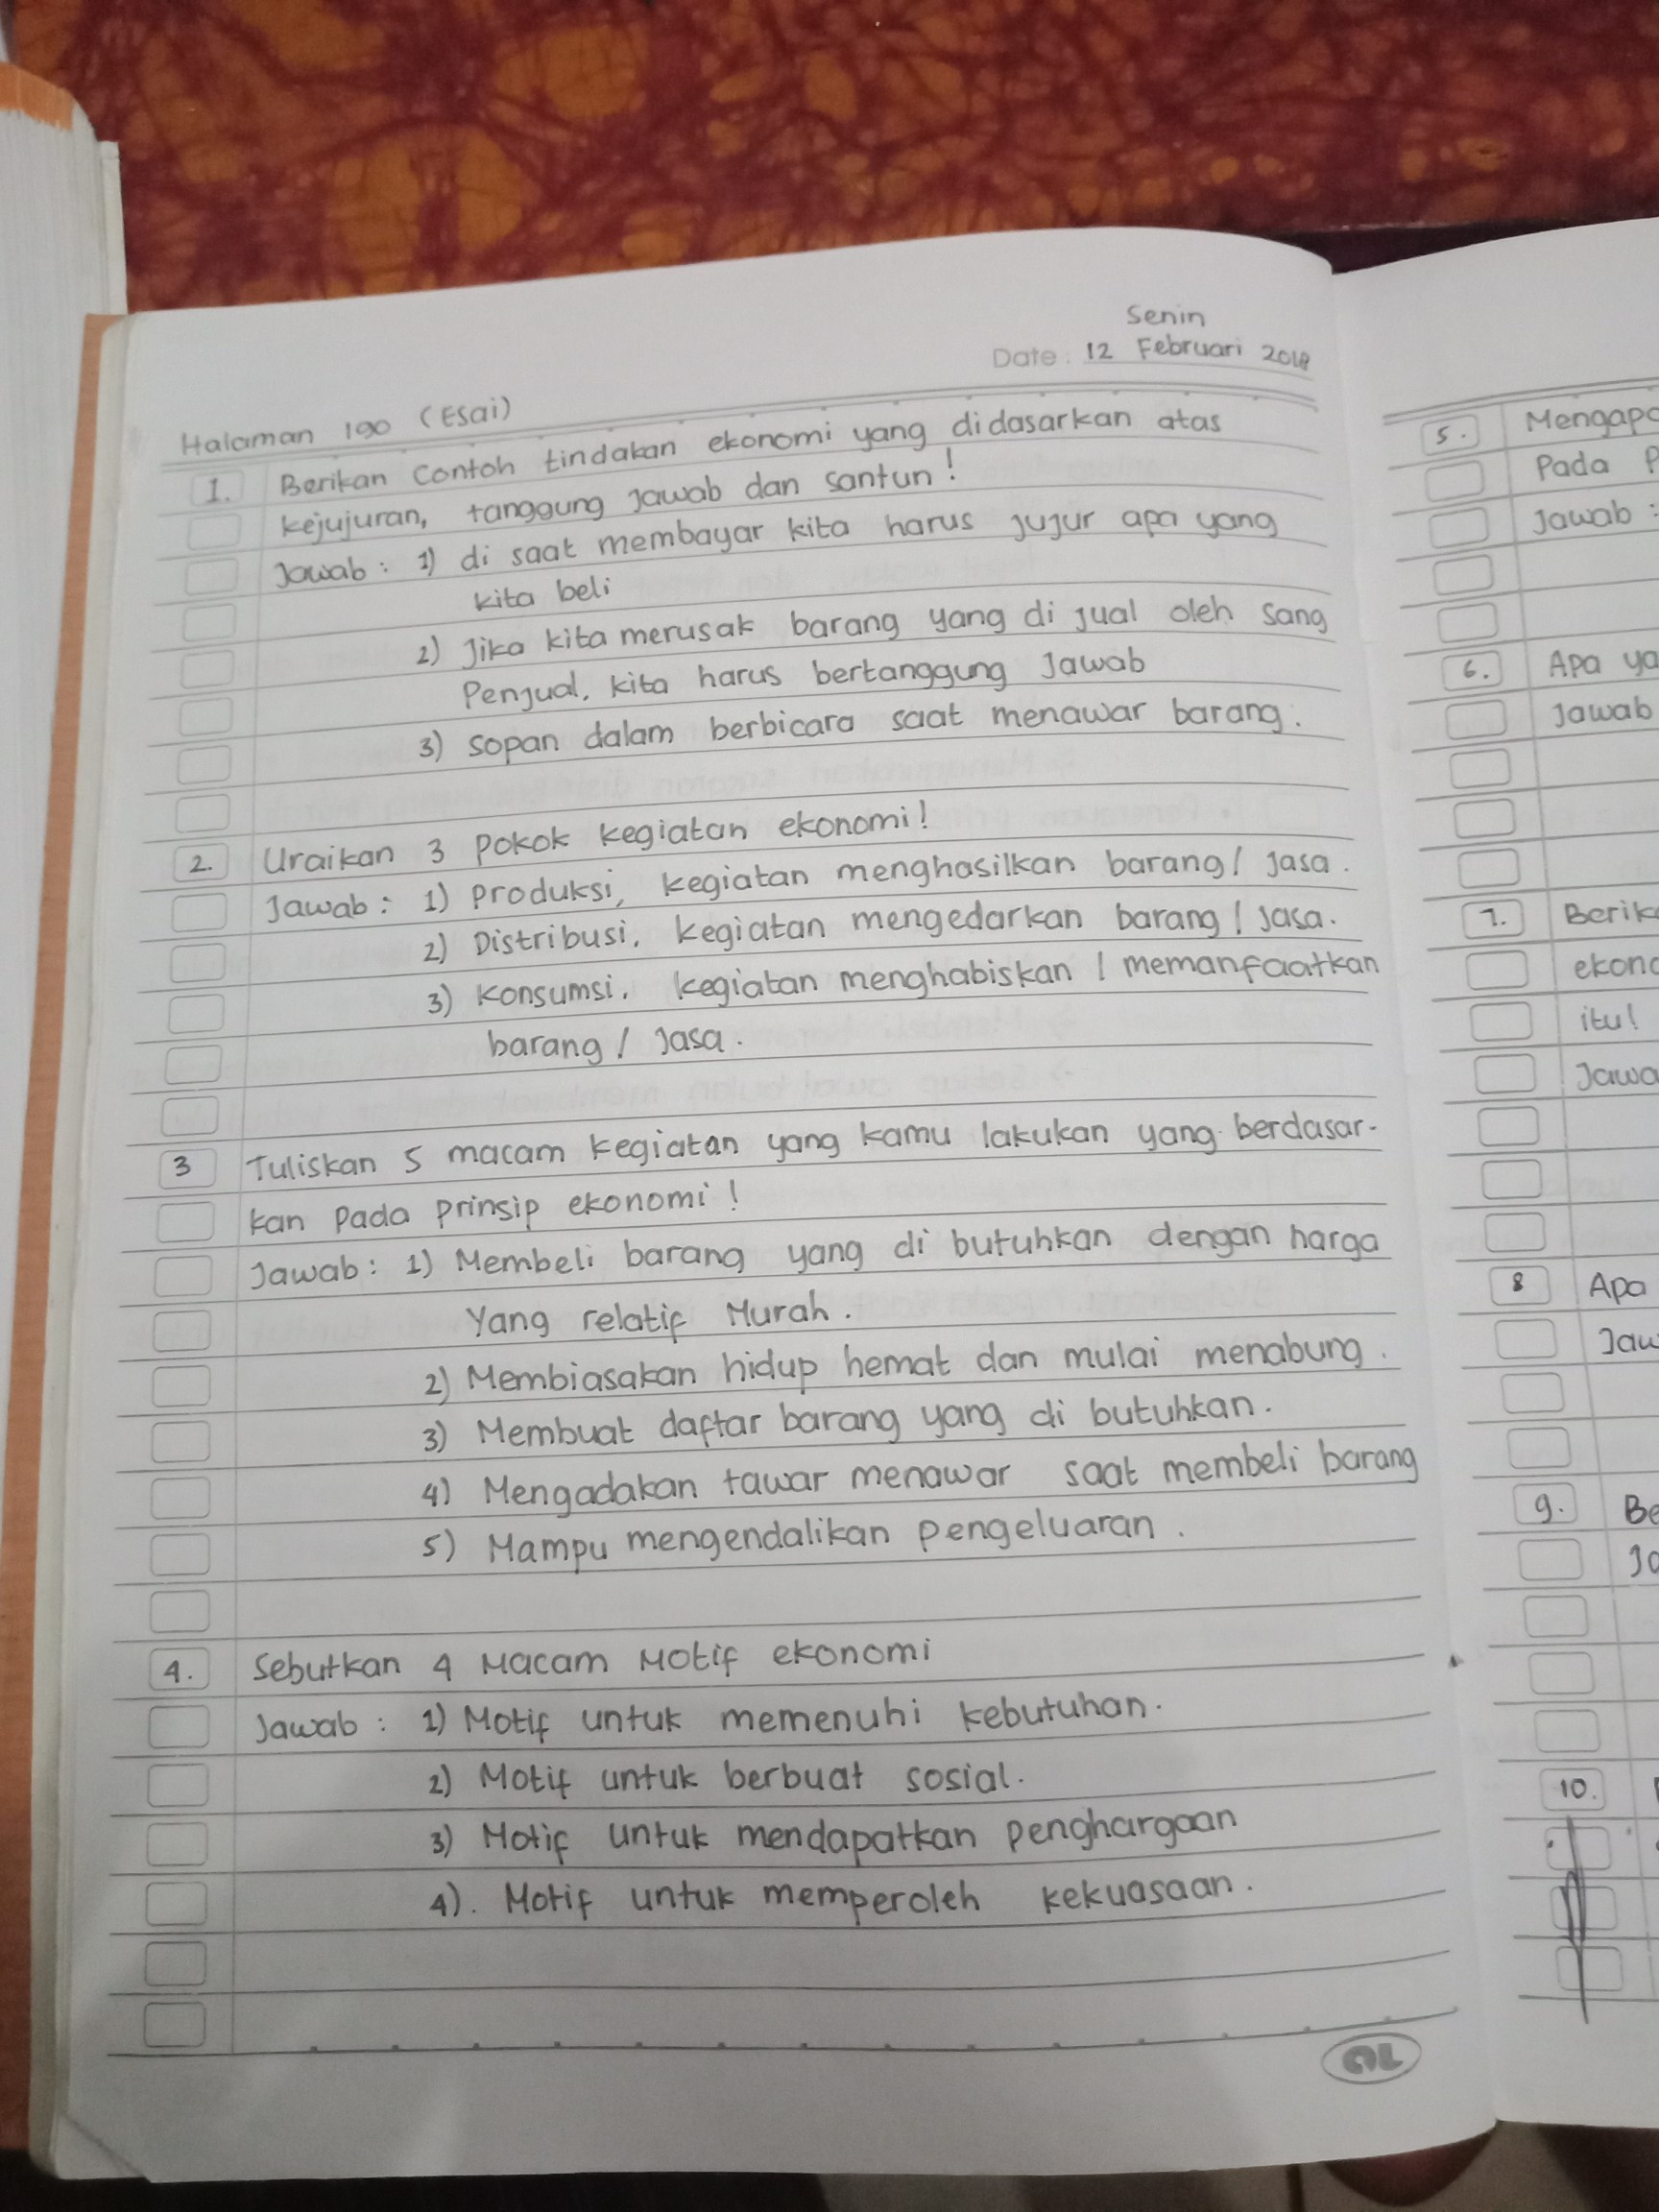 Senin
Date : 12 Februari 2018
Halaman 190 (Esai)
1. Berikan Contoh tindakan ekonomi yang didasarkan atas
kejujuran, tanggung Jawab dan santun !
Jawab : 1) di saat membayar kita harus jujur apa yang
kita beli
2) Jika kita merusak barang yang di jual oleh sang
Penjual, kita harus bertanggung Jawab
3) sopan dalam berbicara saat menawar barang.
2. Uraikan 3 Pokok kegiatan ekonomi !
Jawab : 1) Produksi, kegiatan menghasilkan barang / Jasa.
2) Distribusi, kegiatan mengedarkan barang / Jasa.
3) Konsumsi, kegiatan menghabiskan / memanfaatkan
barang / Jasa.
3 Tuliskan 5 macam kegiatan yang kamu lakukan yang berdasar-
kan pada prinsip ekonomi !
Jawab : 1) Membeli barang yang di butuhkan dengan harga
Yang relatif Murah.
2) Membiasakan hidup hemat dan mulai menabung.
3) Membuat daftar barang yang di butuhkan.
4) Mengadakan tawar menawar saat membeli barang
5) Mampu mengendalikan pengeluaran.
4. Sebutkan 4 Macam Motif ekonomi
Jawab : 1) Motif untuk memenuhi kebutuhan.
2) Motif untuk berbuat sosial.
3) Motif untuk mendapatkan penghargaan
4). Motif untuk memperoleh kekuasaan.
5.
Pada
Jawab :
6. Apa
Jawab
7.
itu!
8 Apa
9.
10.